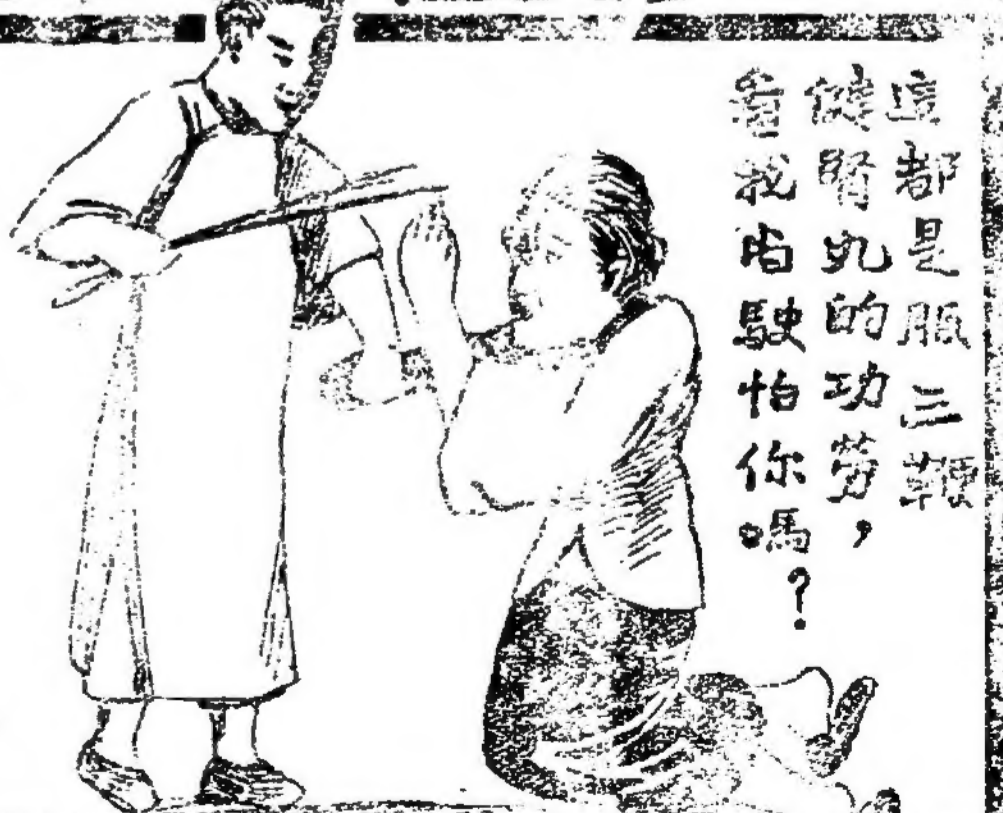 這都是服三鞭
健腎丸的功勞，
看我駛怕你嗎？